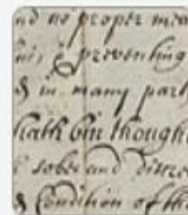 nd no proper mea
preventing
in many part
hath bin thought
sober and Discre
& Condition of th